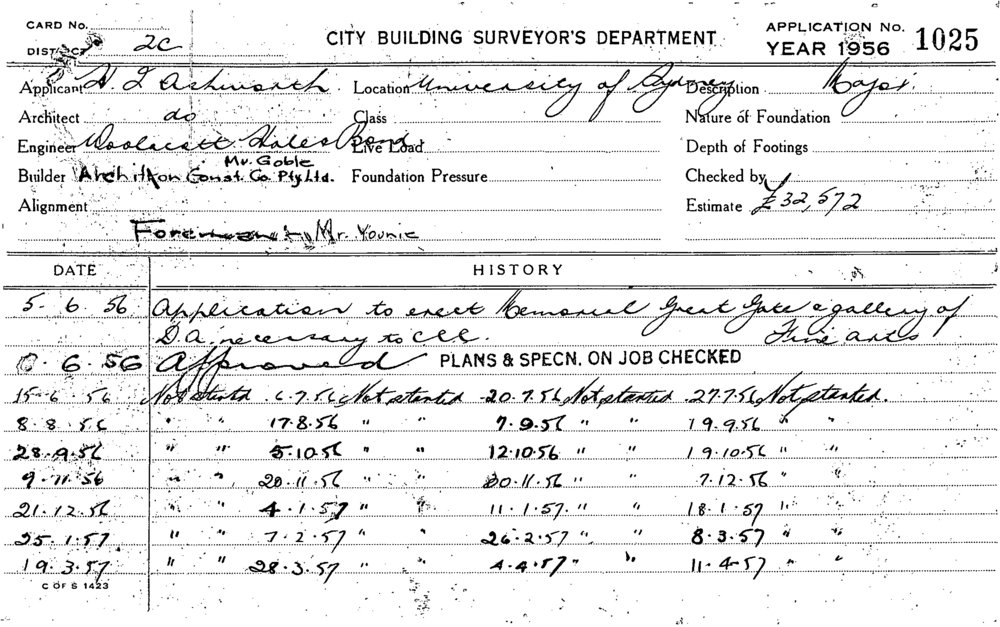 CARD No.
DISTRICT 2C
CITY BUILDING SURVEYOR'S DEPARTMENT
APPLICATION No. 1025
YEAR 1956
Applicant H. I. Ashworth Location University of Sydney Description Major
Architect do Class Nature of Foundation
Engineer Woolacott Hales Bond Live Load Depth of Footings
Mr. Goble
Builder Const. Co Pty Ltd. Foundation Pressure Checked by
Alignment Estimate £32,572
Foreman Mr. Younie
DATE HISTORY
5. 6. 56 Application to erect Memorial Great Gate & gallery of
D.A. necessary to CCC. Fine arts
6.56 Approved PLANS & SPECN. ON JOB CHECKED
15-6.56 Not started 6.7.56 Not started 20.7.56 Not started 27.7.56 Not started.
8.8.56 " " 17.8.56 " " 7.9.56 " " 19.9.56 " "
28.9.56 " " 5.10.56 " " 12.10.56 " " 19.10.56 " "
9.11.56 " " 20.11.56 " " 30.11.56 " " 7.12.56 " "
21.12.56 " " 4.1.57 " " 11.1.57 " " 18.1.57 "
25.1.57 " " 7.2.57 " " 26.2.57 " " 8.3.57 " "
19.3.57 " " 28.3.57 " " 4.4.57 " " 11.4.57 " "
C OF S 1423